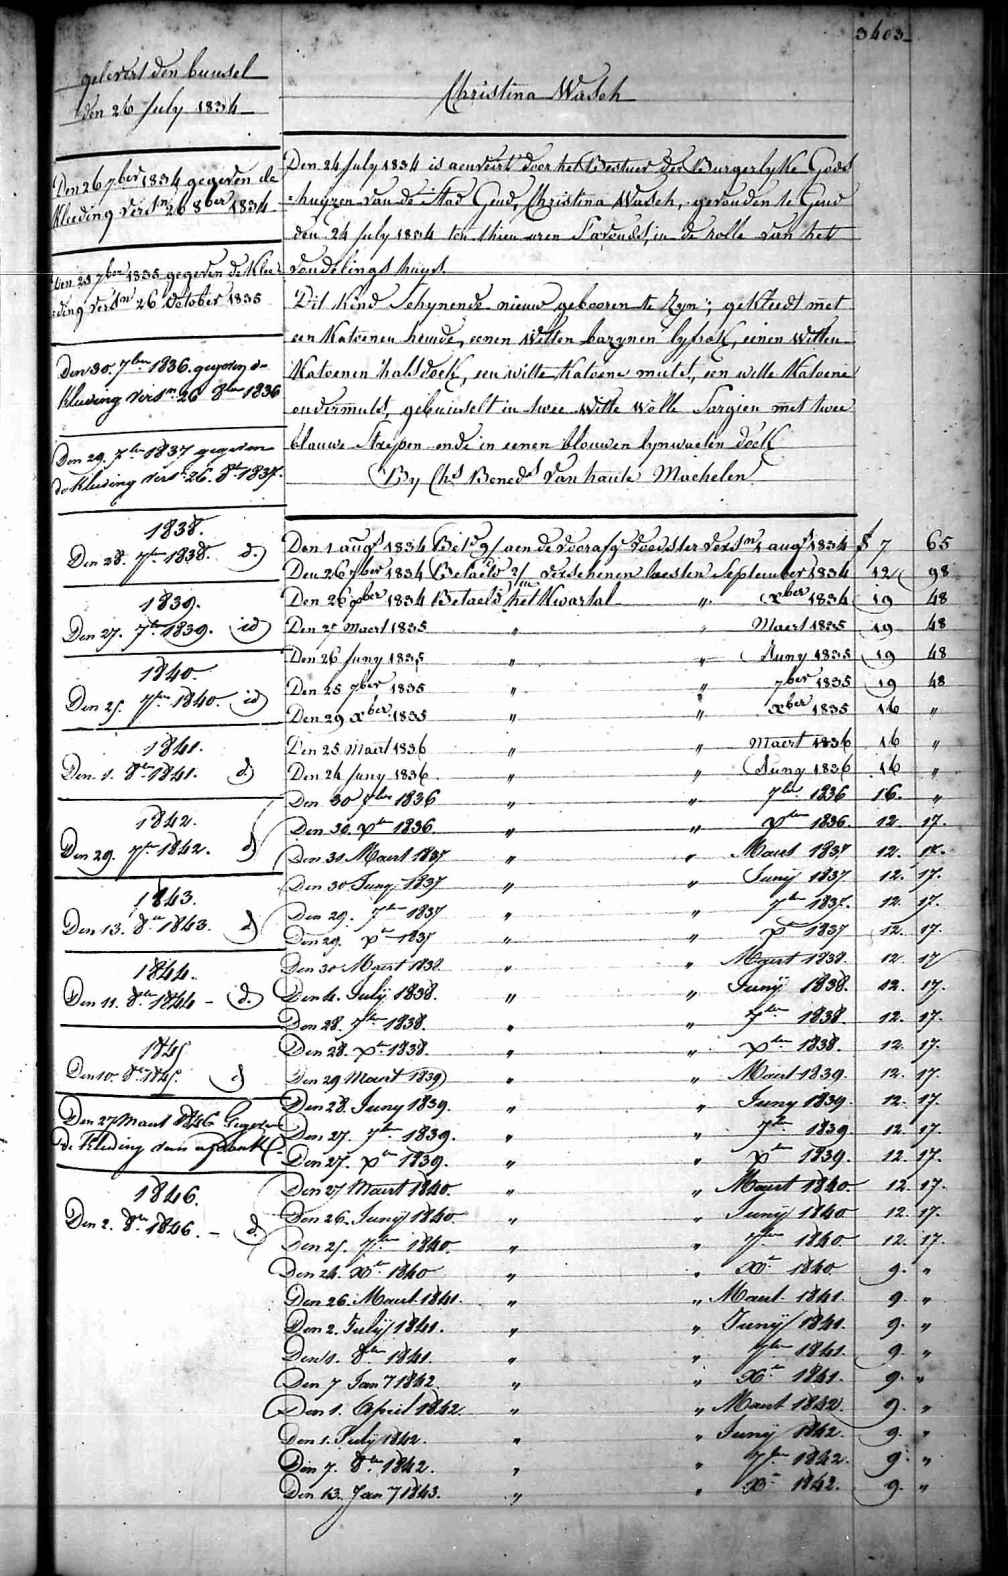 3403
gelevert den bunsel
den 26 July 1834
Christina Wasch
Den 26 7ber 1834 gegeven de
kleeding versn 26 8ber 1834
Den 25 7ber 1835 gegeven de klee-
ding versn 26 October 1835
Den 30. 7ber 1836. gegeven de
kleeding versn 26 8ber 1836
Den 29. 7ber 1837 gegeven
de kleeding versn 26. 8r 1837.
1838.
Den 28. 7br 1838. d.
1839.
Den 27. 7br 1839. id
1840.
Den 25. 7ber 1840. id
1841.
Den 1. 8br 1841. d
1842.
Den 29. 7br 1842. d
1843.
Den 13. 8br 1843. d
1844.
Den 11. 8br 1844 - d.
1845
Den 10. 8br 1845. d
Den 27 Maart 1846 Gegeven
de kleeding van
1846.
Den 2. 8br 1846. - d.
Den 24 July 1834 is aenveirt door het Bestuer der Burgerlyke Gods
=huyzen van de Stad Gend, Christina Wasch, gevonden te Gend
den 24 July 1834 ten thien uren S'avonds, in de rolle van het
vondelings huys.
Dit Kind Schynende nieuw gebooren te Zyn; gekleedt met
een Katoenen hemde, eenen Witten bazynen lyfrok, eenen Witten
Katoenen halsdoek, een witte Katoene muts, een witte Katoene
ondermuts, gebunselt in twee Witte Wolle Sargien met twee
blauwe Strepen ende in eenen blouwen lynwaeten doek
By Chs Bened Van haute Machelen
Den 1 augt 1834 Bet aen de voorafge voedster versn 1 augt 1834 f 7 65
Den 26 7ber 1834 Betaeld 2/m verschenen laesten September 1834 12 98
Den 26 xber 1834 Betaeld het Kwartal " xber 1834 19 48
Den 25 Maert 1835 " " Maert 1835 19 48
Den 26 Juny 1835 " " Juny 1835 19 48
Den 25 7ber 1835 " " 7ber 1835 19 48
Den 29 xber 1835 " " xber 1835 16 "
Den 25 Maert 1836 " " Maert 1836 16 "
Den 24 Juny 1836 " " Juny 1836 16 "
Den 30 7ber 1836 " " 7br 1836 16. "
Den 30. xbr 1836. " " xber 1836. 12. 17.
Den 31 Maert 1837 " " Maert 1837 12. 17.
Den 30 Juny 1837 " " Junij 1837 12. 17.
Den 29. 7ber 1837 " " 7ber 1837. 12. 17.
Den 29. xbr 1837 " " xbr 1837 12. 17.
Den 30 Maert 1838. " " Maert 1838. 12. 17
Den 4. Julij 1838. " " Junij 1838. 12. 17.
Den 28. 7ber 1838. " " 7ber 1838. 12. 17.
Den 28. xbr 1838. " " xber 1838. 12. 17.
Den 29 Maert 1839 " " Maert 1839. 12. 17.
Den 28. Juny 1839. " " Juny 1839. 12. 17.
Den 27. 7br 1839. " " 7br 1839. 12. 17.
Den 27. xbr 1839. " " xbr 1839. 12. 17.
Den 27 Maert 1840. " " Maert 1840. 12. 17.
Den 26. Junij 1840. " " Junij 1840 12. 17.
Den 25. 7ber 1840. " " 7ber 1840. 12. 17.
Den 24. xbr 1840 " " xbr 1840. 9. "
Den 26. Maert 1841. " " Maert 1841. 9. "
Den 2. Julij 1841. " " Junij 1841. 9. "
Den 1. 8br 1841. " " 7ber 1841. 9. "
Den 7 Jan 7 1842. " " xbr 1841. 9. "
Den 1. April 1842. " " Maert 1842. 9. "
Den 1. Julij 1842. " " Junij 1842. 9. "
Den 7. 8br 1842. " " 7ber 1842. 9. "
Den 13. Jan 7 1843. " " xbr 1842. 9. "